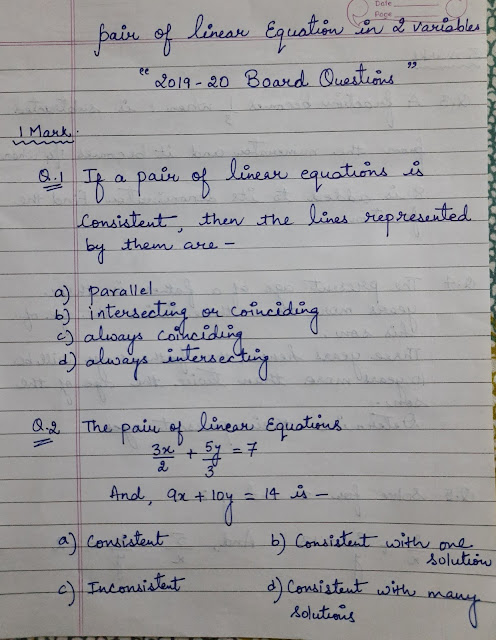 Date
Page
pair of linear Equation in 2 variables
"2019-20 Board Questions"
1 Mark.
Q.1 If a pair of linear equations is
Consistent, then the lines represented
by them are -
a) parallel
b) intersecting or coinciding
c) always coinciding
d) always intersecting
Q.2 The pair of linear Equations
3x/2 + 5y/3 = 7
And, 9x + 10y = 14 is -
a) Consistent b) Consistent with one
solution
c) Inconsistent d) Consistent with many
solutions